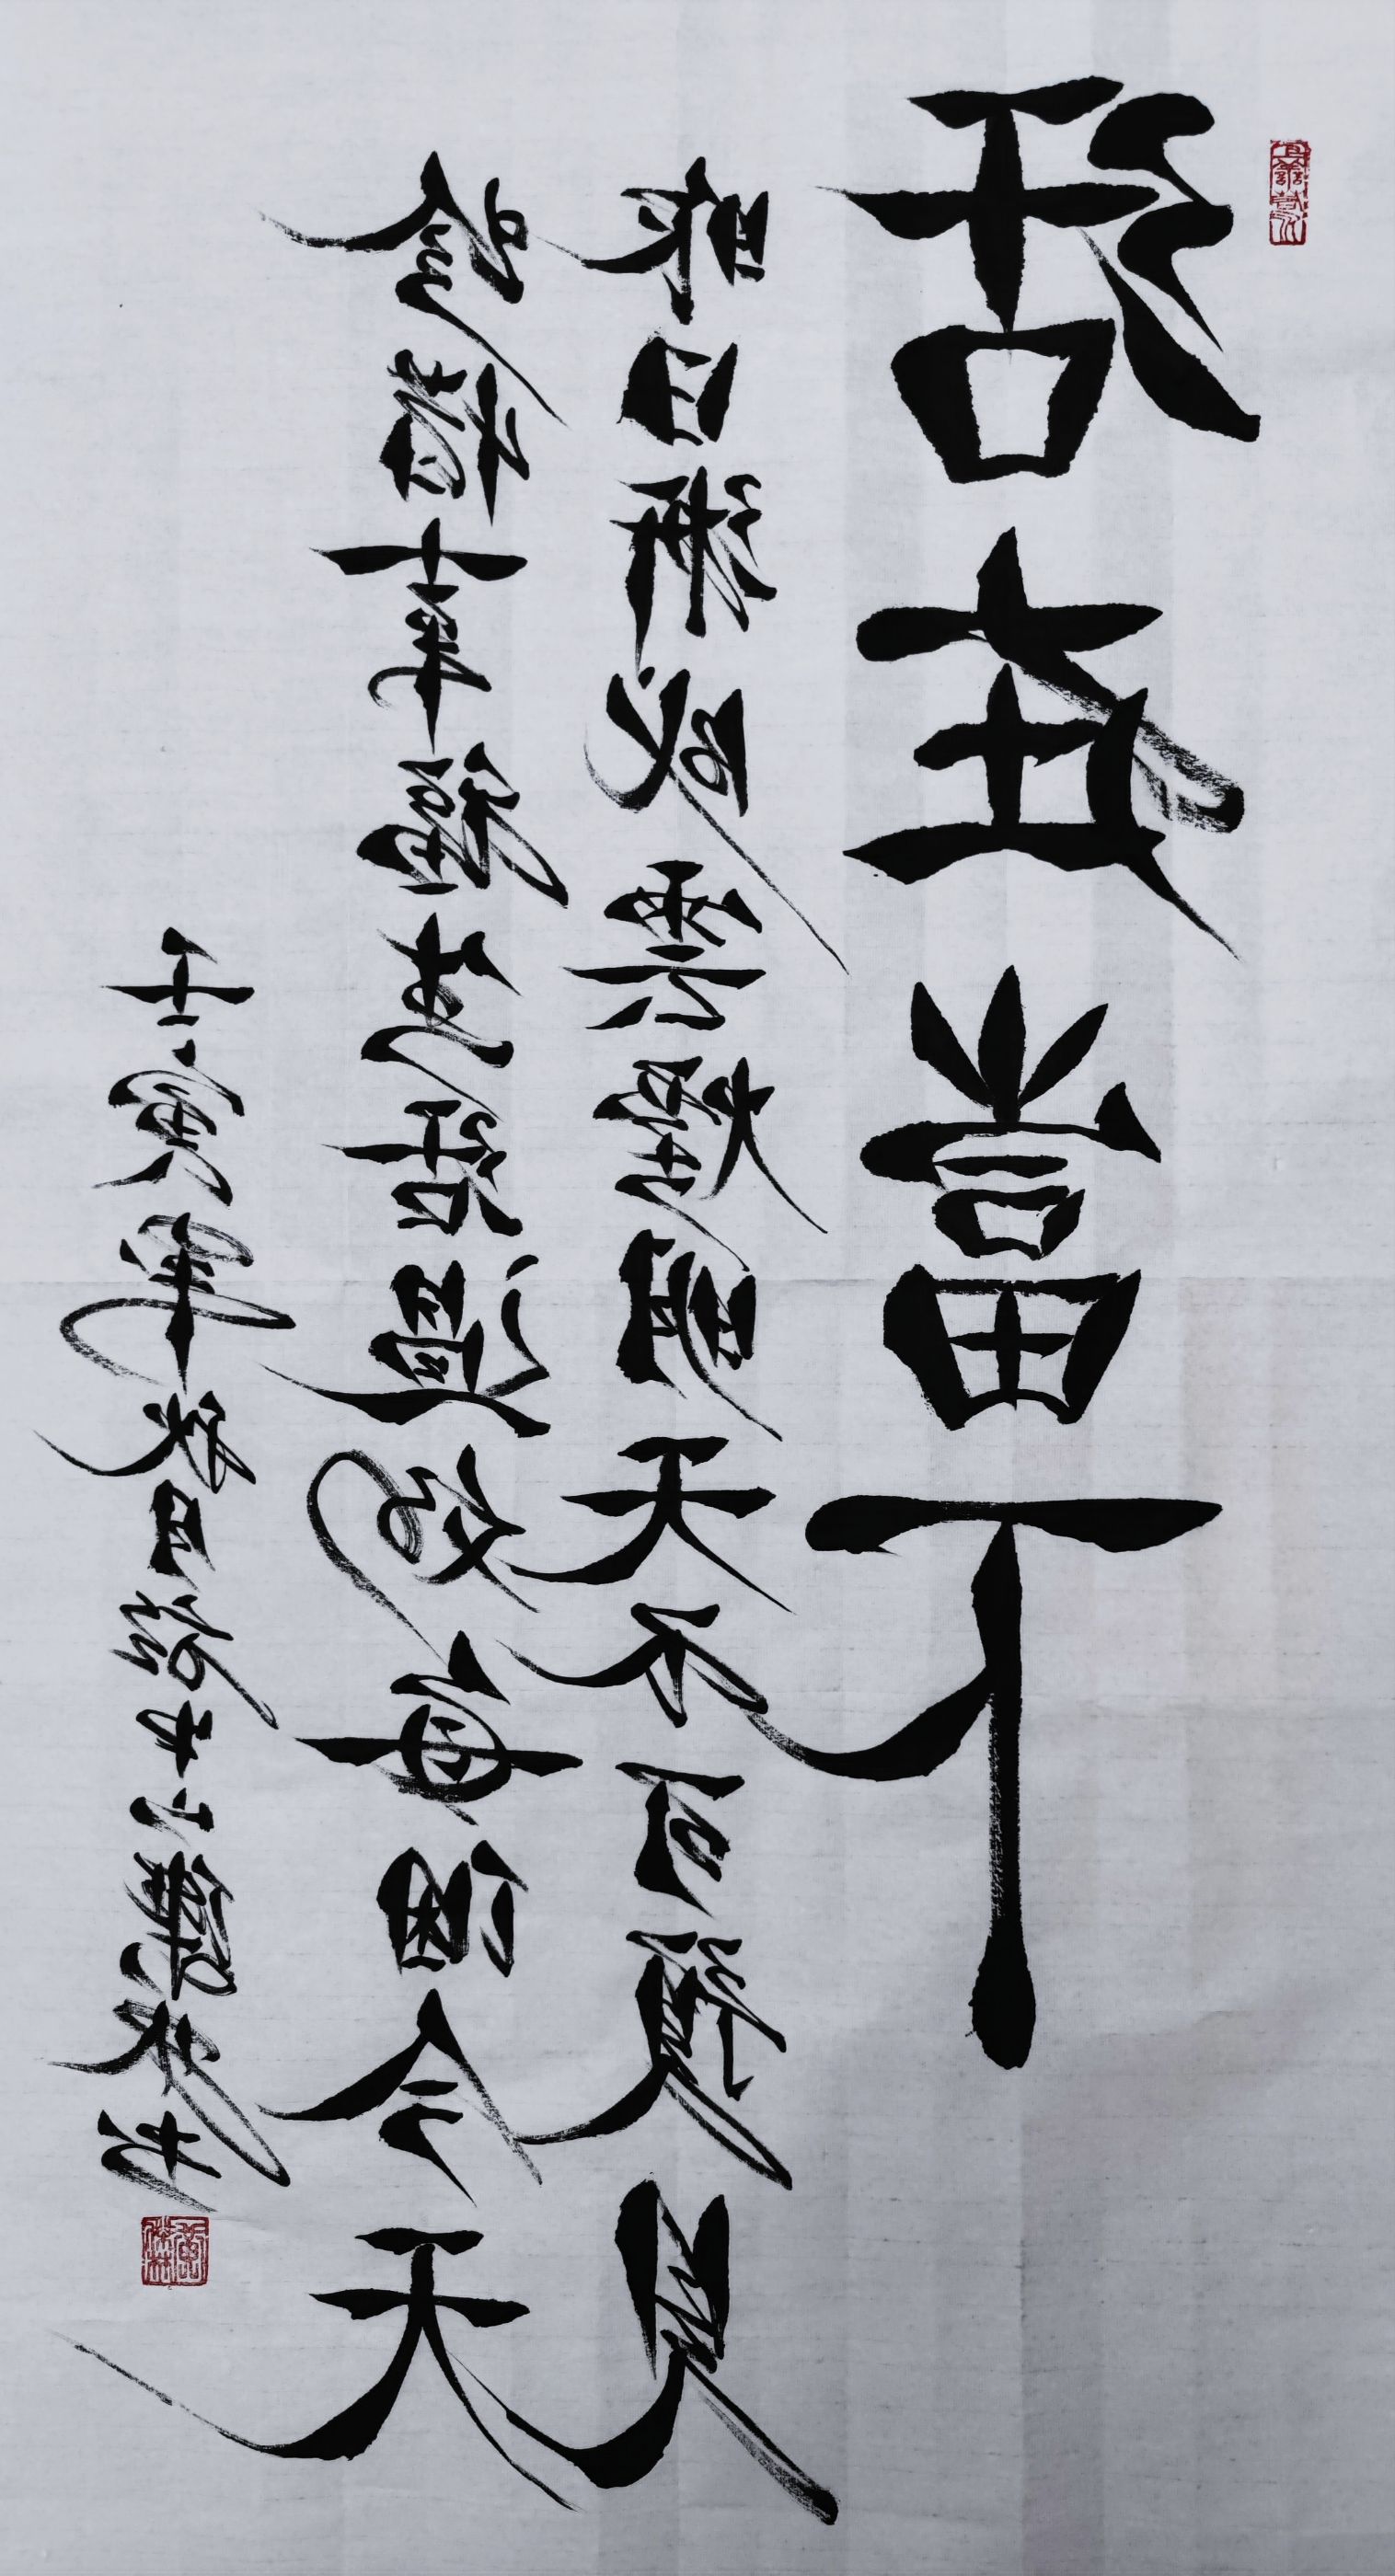 活在當下
昨日漸成雲煙明天不可預見
珍惜幸福生活過好每個今天
壬寅年秋日於中山
書